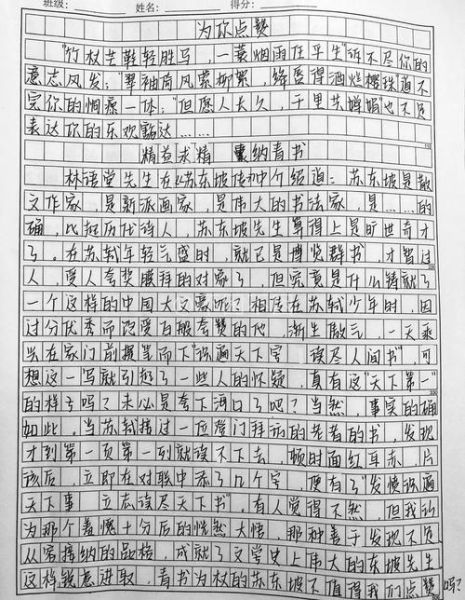 班级： 姓名： 得分：
为你点赞
“竹杖芒鞋轻胜马，一蓑烟雨任平生”诉不尽你的
意志风发；“翠袖
完你的恫瘝一体；“但愿人长久，千里共婵娟也不足
表达你的乐观豁达……
精益求精 纳青书
林语堂先生在《苏东坡传》中介绍道：苏东坡是散
文作家，是新派画家，是伟大的书法家，是……的
确，比起历代诗人，苏东坡先生算得上是旷世奇才
了。在苏轼年轻气盛时，就已是博览群书，才智过
人，受人夸奖膜拜的对象了，但究竟是什么铸就了
一个这样的中国大文豪呢？相传在苏轼少年时，因
过分优秀而饱受百般夸赞的他，渐生傲气，一天乘
兴在家门前提笔而下“识遍天下字 读尽人间书”，可
想这一写就引起了一些人的怀疑，真有这“天下第一”
的样子吗？未必是夸下海口了吧？当然，事实的确
如此，当苏轼接过一应登门拜访的老者的书，发现
才到第一页第一列就读不下去，顿时面红耳赤，片
该后，立即在对联中添了几个字，便有了“发愤识遍
天下事 立志读尽天下书”，有人觉得不然，但我以
为那个羞愧十分后的恍然大悟，那种善于发现不足
从容接纳的品格，成就了文学史上伟大的东坡先生
这样锐意进取，青书为权的苏东坡不值得我们点赞吗？